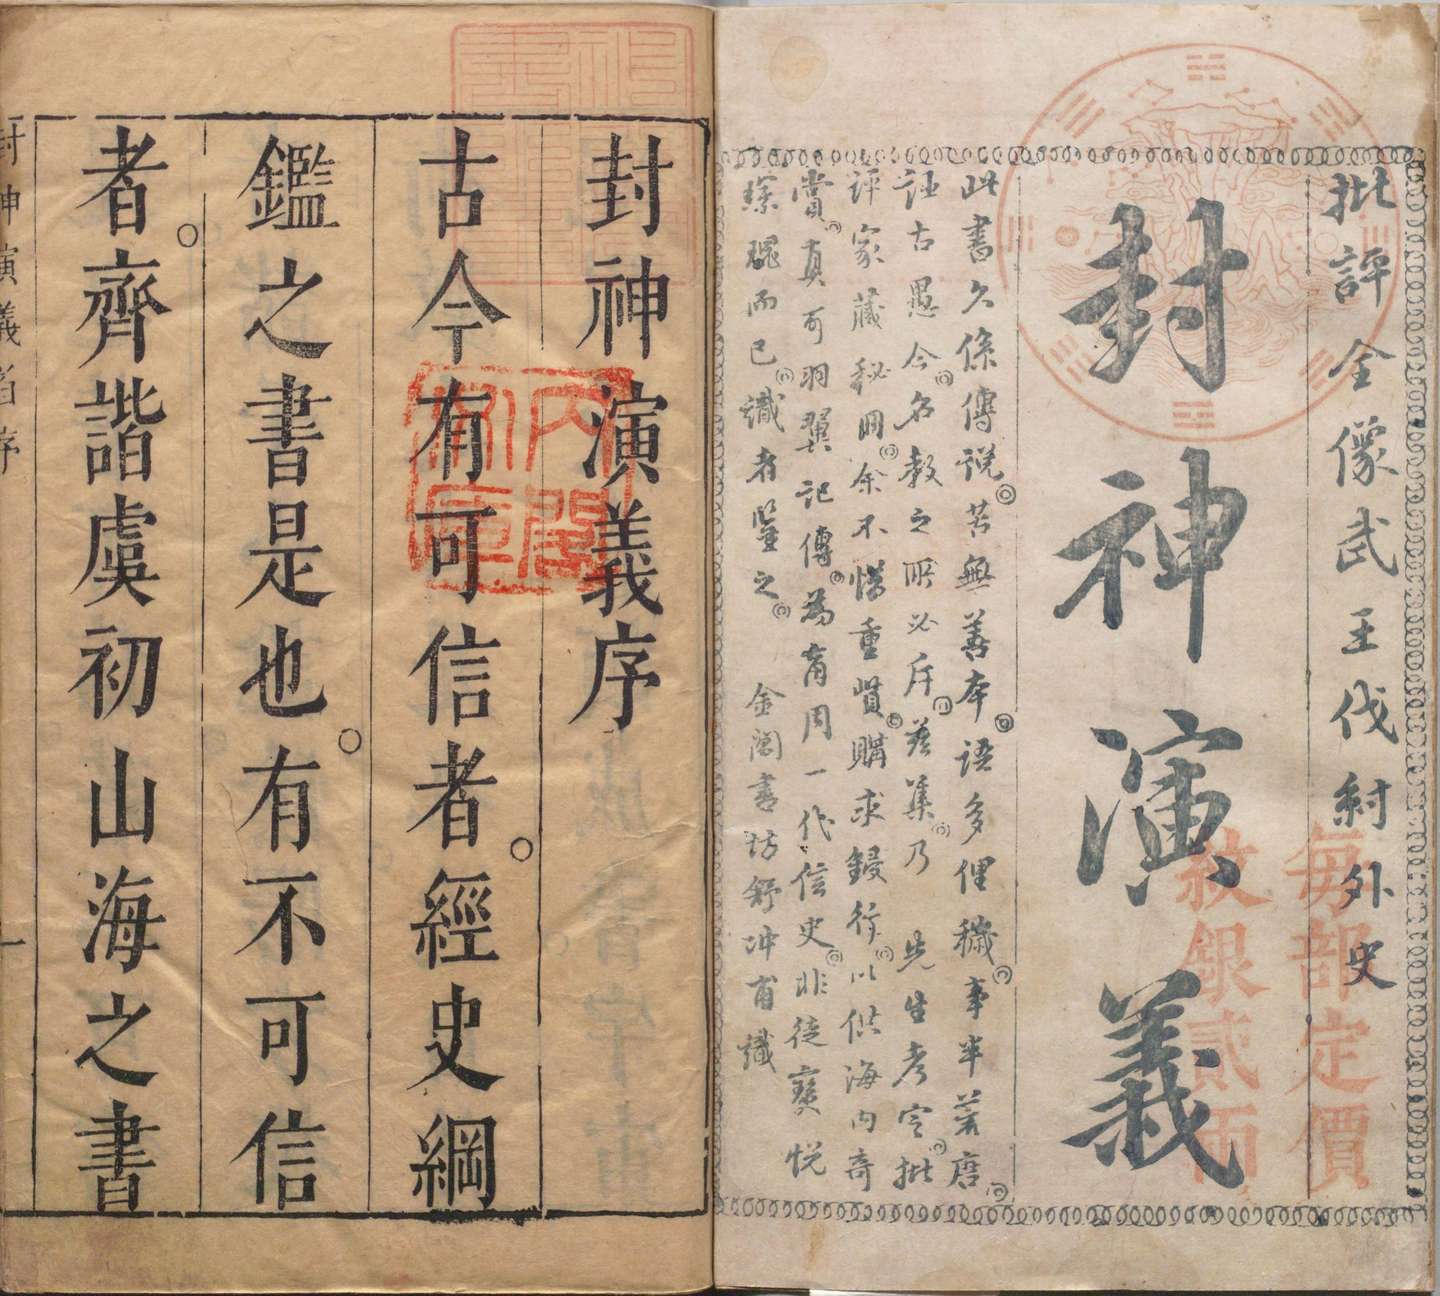 批評全像武王伐紂外史
封神演義
此書久係傳說苦無善本語多俚穢事半荒唐
誣古愚今名教之所必斥茲集乃先生考定批
評家藏秘冊余不惜重貲購求鋟行以供海內奇
賞真可羽翼記傳為商周一代信史非徒寶悅
琛瑰而已識者鑒之 金閶書坊舒冲甫識
每部定價
紋銀貳兩
封神演義序
古今有可信者經史綱
鑑之書是也有不可信
者齊諧虞初山海之書
封神演義 序 一
內閣
文庫